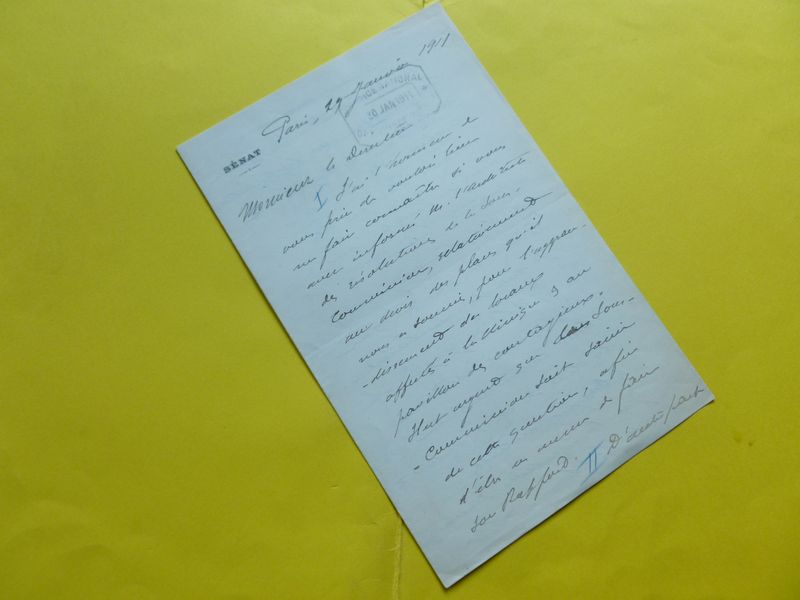 SÉNAT
Paris, 29 Janvier 1911
30 JAN 1911
Monsieur le Directeur
I J'ai l'honneur de
vous prie de vouloir bien
me faire connaître si vous
avez informé M. l'architecte
des résolutions de la Sous-
Commission, relativement
au devis des plans qu'il
nous a soumis, pour l'aggran-
-dissement des locaux
affectés à la clinique au
pavillon des contagieux.
Il est urgent que la Sous-
-Commission soit saisie
de cette question, afin
d'être en mesure de faire
son Rapport. II D'autre part